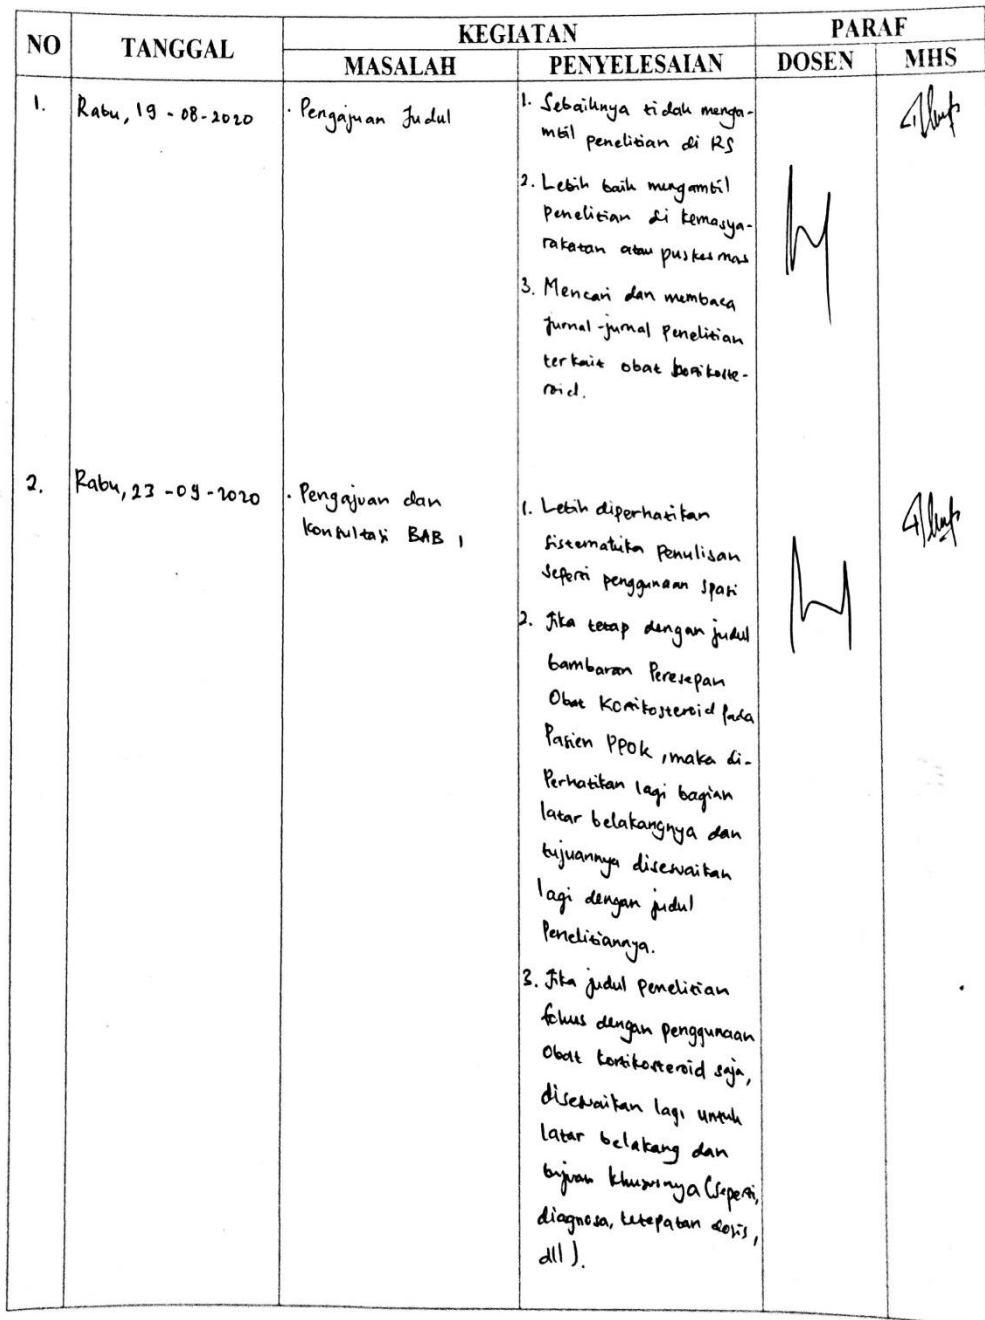 NO TANGGAL KEGIATAN PARAF
MASALAH PENYELESAIAN DOSEN MHS
1. Rabu, 19-08-2020 · Pengajuan Judul 1. Sebaiknya tidak menga-
mbil penelitian di RS
2. Lebih baik mengambil
penelitian di kemasya-
rakatan atau puskesmas
3. Mencari dan membaca
jurnal-jurnal penelitian
terkait obat kortikoste-
roid.
2. Rabu, 23-09-2020 · Pengajuan dan
konsultasi BAB 1
1. Lebih diperhatikan
sistematika penulisan
seperti penggunaan spasi
2. Jika tetap dengan judul
Gambaran Peresepan
Obat Kortikosteroid pada
Pasien PPOK, maka di-
perhatikan lagi bagian
latar belakangnya dan
tujuannya disesuaikan
lagi dengan judul
Penelitiannya.
3. Jika judul penelitian
fokus dengan penggunaan
Obat kortikosteroid saja,
disesuaikan lagi untuk
latar belakang dan
tujuan khususnya (seperti,
diagnosa, ketepatan dosis,
dll).